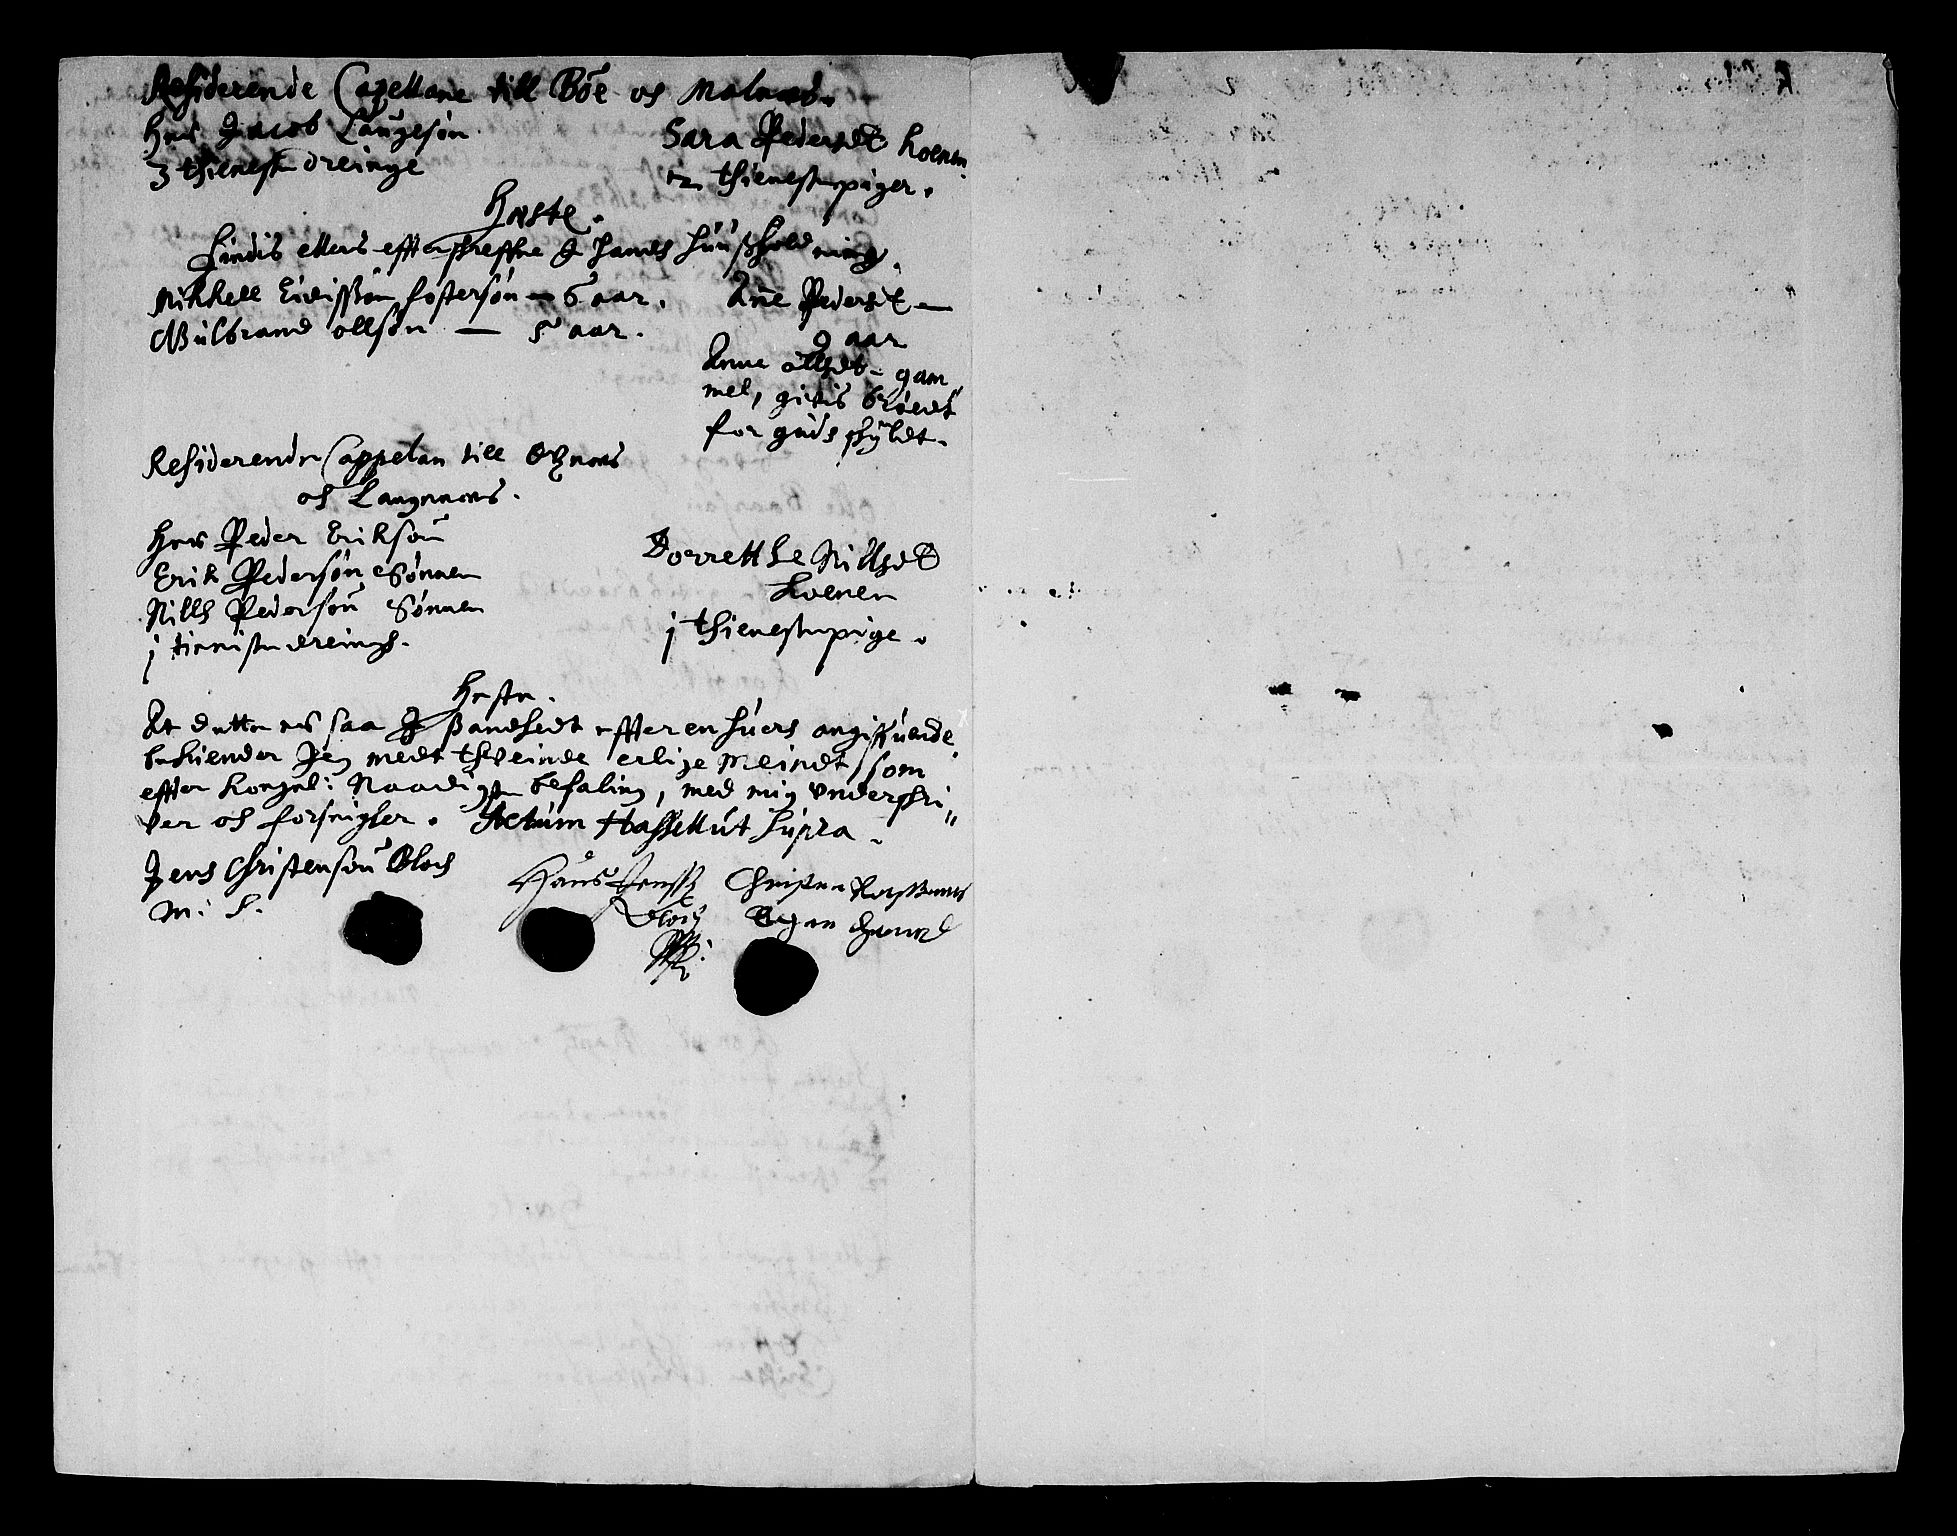 Residerende Capellane till Böe och Malnes.
Herr Jacob Laugesön
3 thieneste dreinge
Sara Pedersdt koenen
2 thienestepiger.
Heste.
Findis ellers effterschreffne J hands huusholdning.
Mikkell Eivissön fostersön — 6 aar.
Gulbrand ollsön — 5 aar.
Ane Pedersdt —
9 aar
Anne ollsdt — gam
mel, givis brödt
for guds schyldt.
Residerende Cappelan till Öxnees
och Langenees.
Herr Peder Eriksön
Erik Pedersön Sönnen
Nills Pedersön Sönnen
j tienniste dreingh.
Dorretthe Nillsdt
koenen
j thienestepige.
Heste.
At dette er saa J sandhedt effter en huers angiffuende
bekiender Jeg medt thveinde erlige Meindt som
effter kongel: Naadigste befaling, med mig underschri„
ver och forseigler. Actum Hassell ut supra.
Jens Christensön Bloch
M: S.
Hans Jenssön
Bloch
Christen
Egen haand